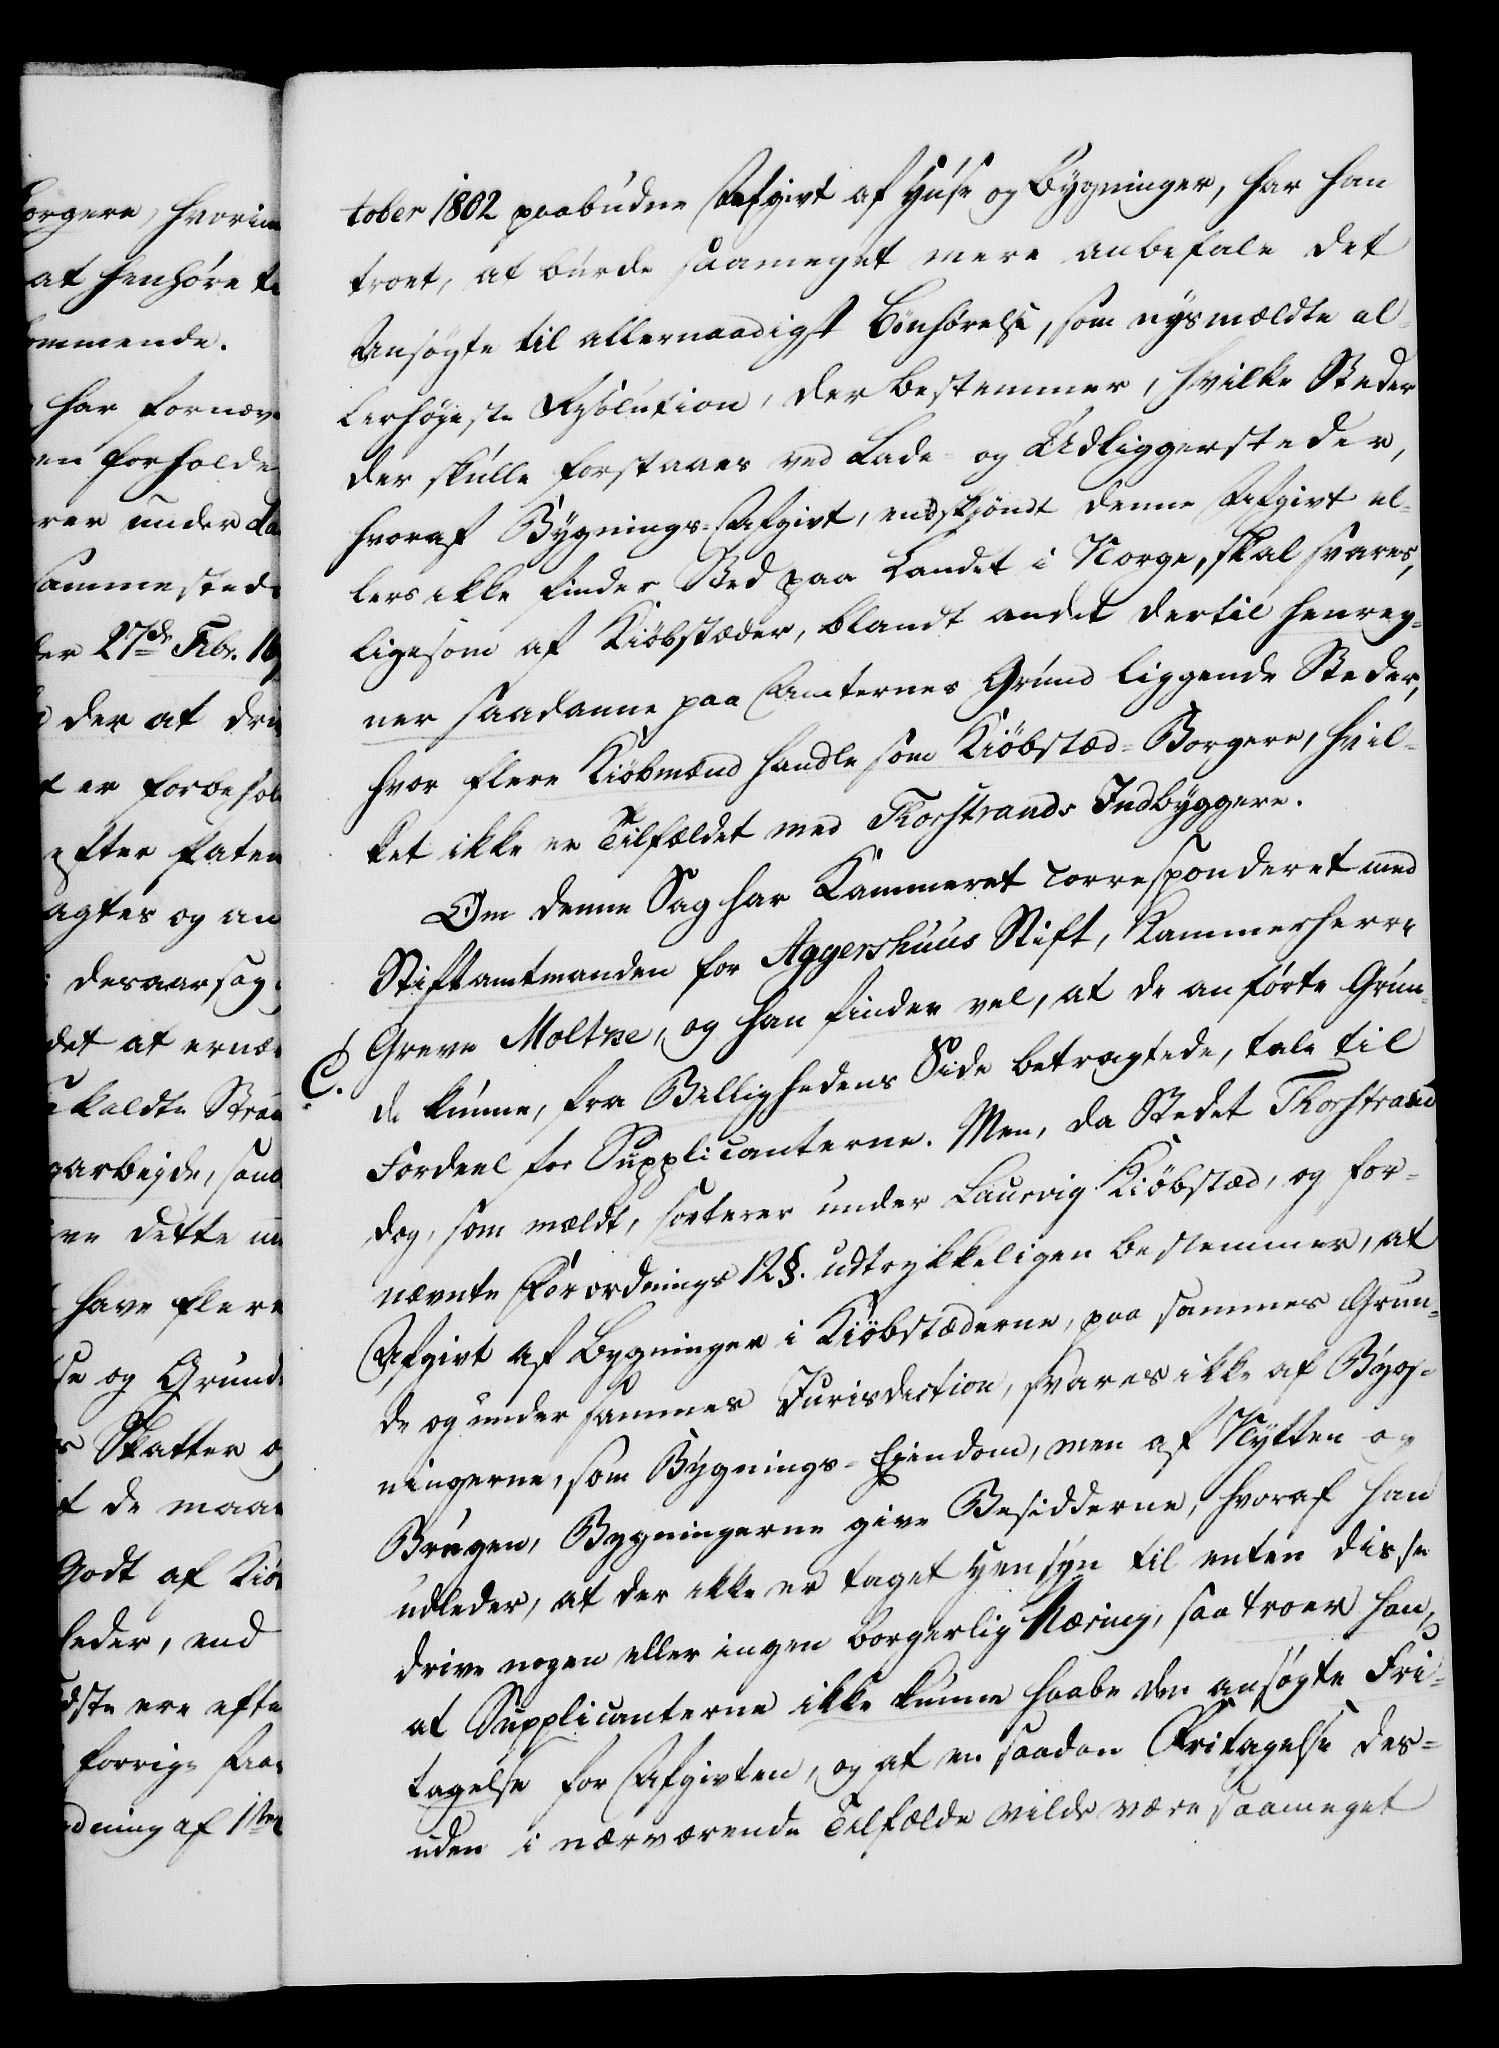 orgere, hvorim
at henhöre t
ommende.
har fornæv
en forholde
rer under La
sammesteds
der 27de Febr. 16
der at dri
t er forbehol
efter Paten
agtes og an
desaarsag
det at ernæ
kaldte Stran
garbejde, som
ve dette un
have flere
se og Grund
s Skatter og
t de maa
Godt af Kiö
heder, end
dste ere efte
forrige Aar
dning af 1ste
tober 1802 paabudne Afgivt af Huse og Bygninger, har han
troet, at burde saameget mere anbefale det
Ansögte til allernaadigst Bönhörelse, som nysmældte al-
lerhöyeste Resolution, der bestemmer, hvilke Steder
der skulle forstaaes ved Lade- og Udliggersteder,
hvoraf Bygnings-Afgivt, endskjöndt denne Afgivt el-
lers ikke finder Sted paa Landet i Norge, skal svares,
ligesom af Kiöbstæder, blandt andet dertil henreg-
ner saadanne paa Amternes Grund liggende Steder,
hvor flere Kiöbmænd handle som Kiöbstæd-Borgere, hvil-
ket ikke er Tilfældet med Thorstrands Indbyggere.
Om denne Sag har Kammeret corresponderet med
Stiftamtmanden for Aggershuus Stift, Kammerherre
Greve Moltke, og han finder vel, at de anförte Grun-
C.
de kunne, fra Billighedens Side betragtede, tale til
Fordeel for Supplicanterne. Men, da Stedet Thorstrand
dog, som mældt, sorterer under Laurvig Kiöbstæd, og for-
nævnte Forordnings 12§. udtrykkeligen bestemmer, at
Afgivt af Bygninger i Kiöbstæderne, paa sammes Grun-
de og under sammes Jurisdiction, svares ikke af Byg-
ningerne, som Bygnings-Ejendom, men af Nytten og
Brugen, Bygningerne give Besidderne, hvoraf han
udleder, at der ikke er taget Hensyn til enten disse
drive nogen eller ingen borgerlig Næring, saa troer han,
at Supplicanterne ikke kunne haabe den ansögte Fri-
tagelse for Afgivten, og at en saadan Fritagelse des-
uden i nærværende Tilfælde vilde være saameget